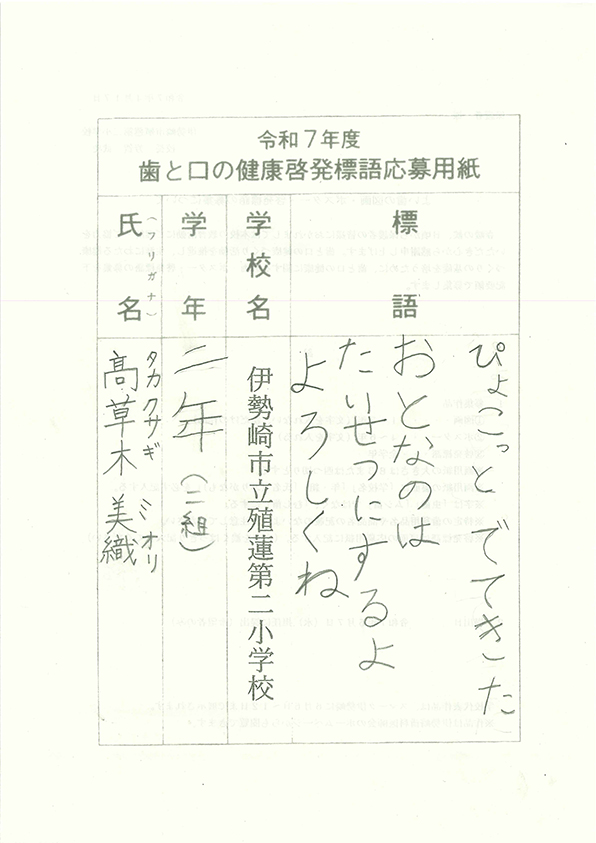 令和7年度
歯と口の健康啓発標語応募用紙
標語
ぴょこっとでてきた
おとなのは
たいせつにするよ
よろしくね
学校名
伊勢崎市立殖蓮第二小学校
学年
二年(二組)
氏名(フリガナ)
タカクサギ ミオリ
高草木 美織